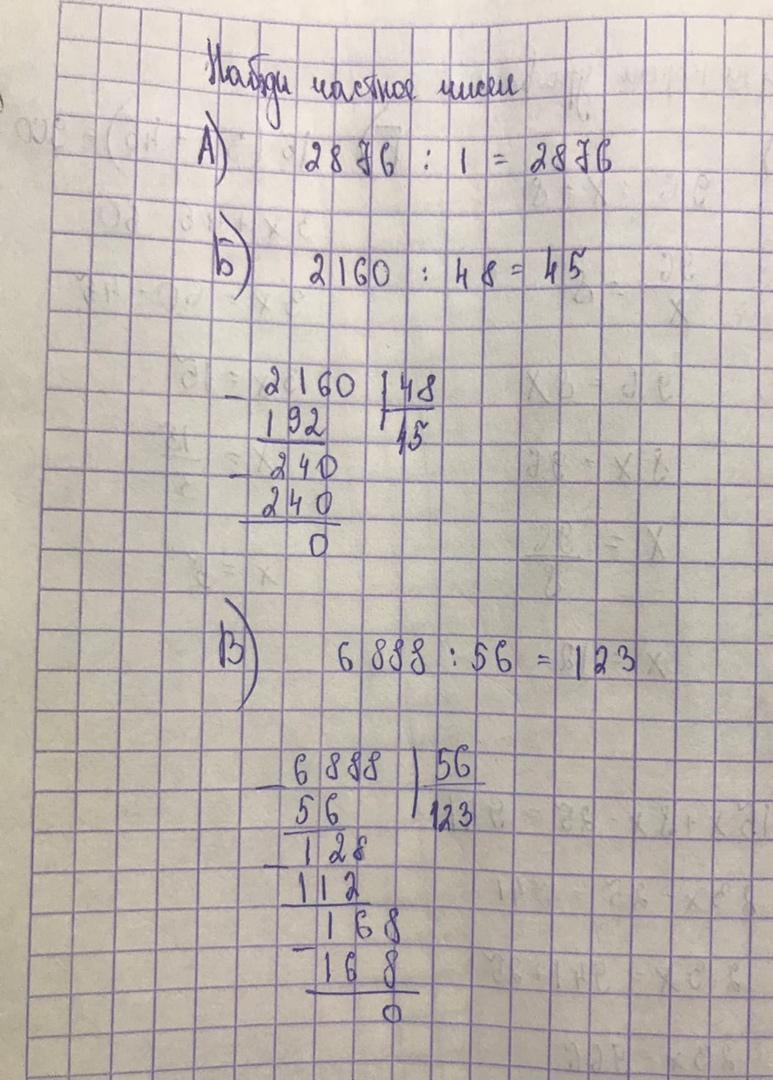 Найди частное чисел
А) 2876 : 1 = 2876
Б) 2160 : 48 = 45
- 2160 | 48
192 45
- 240
240
0
В) 6888 : 56 = 123
- 6888 | 56
56 123
- 128
112
- 168
168
0